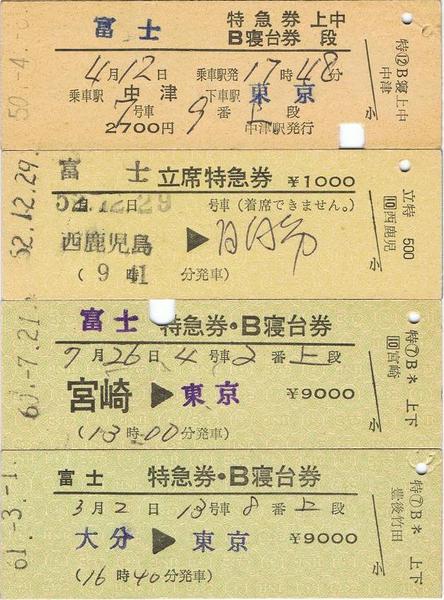 富士
特急券 上中
B寝台券 段
4月12日 乗車駅発17時48分
乗車駅 中津 下車駅 東京
7号車 9番上段
2700円 中津駅発行
50.-4.-
特⑫B寝上中
中津
小
富士 立席特急券 ¥1000
52.12.29
号車(着席できません。)
西鹿児島 ▶
(9時41分発車)
52.12.29.
立特 500
⑩西鹿児
小
富士 特急券・B寝台券
7月26日4号車2番上段
宮崎 ▶ 東京 ¥9000
(13時00分発車)
60.-7.21
特⑦B* 上下
⑩宮崎
小
富士 特急券・B寝台券
3月2日13号車8番上段
大分 ▶ 東京 ¥9000
(16時40分発車)
61.-3.-1.
特⑦B* 上下
豊後竹田
小